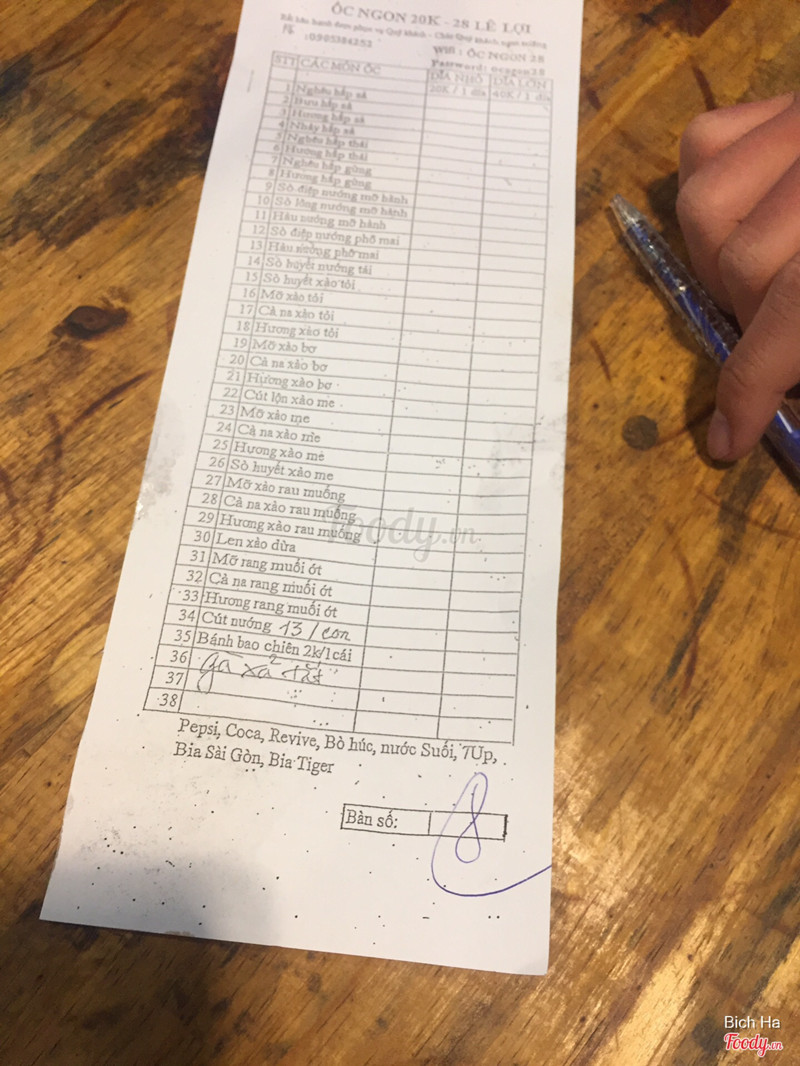 ỐC NGON 20K - 28 LÊ LỢI
:0905384253
Wifi : ỐC NGON 28
Password: ocngon28
STT CÁC MÓN ỐC ĐĨA NHỎ ĐĨA LỚN
20K / 1 đĩa 40K / 1 đĩa
1 Nghêu hấp sả
2 Bưu hấp sả
3 Hương hấp sả
4 Nhảy hấp sả
5 Nghêu hấp thái
6 Hương hấp thái
7 Nghêu hấp gừng
8 Hương hấp gừng
9 Sò điệp nướng mỡ hành
10 Sò lông nướng mỡ hành
11 Hàu nướng mỡ hành
12 Sò điệp nướng phô mai
13 Hàu nướng phô mai
14 Sò huyết nướng tái
15 Sò huyết xào tỏi
16 Mỡ xào tỏi
17 Cà na xào tỏi
18 Hương xào tỏi
19 Mỡ xào bơ
20 Cà na xào bơ
21 Hương xào bơ
22 Cút lộn xào me
23 Mỡ xào me
24 Cà na xào me
25 Hương xào me
26 Sò huyết xào me
27 Mỡ xào rau muống
28 Cà na xào rau muống
29 Hương xào rau muống
30 Len xào dừa
31 Mỡ rang muối ớt
32 Cà na rang muối ớt
33 Hương rang muối ớt
34 Cút nướng 13/con
35 Bánh bao chiên 2k/1cái
36
37
38
Pepsi, Coca, Revive, Bò húc, nước Suối, 7Up,
Bia Sài Gòn, Bia Tiger
Bàn số: 8
Foody.vn
Bich Ha
Foody.vn